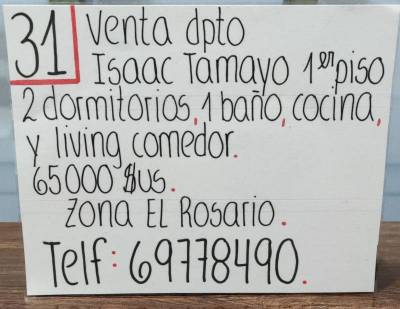 31 Venta dpto
Isaac Tamayo 1er piso
2 dormitorios, 1 baño, cocina,
y living comedor.
65000 $us.
Zona EL Rosario.
Telf: 69778490.